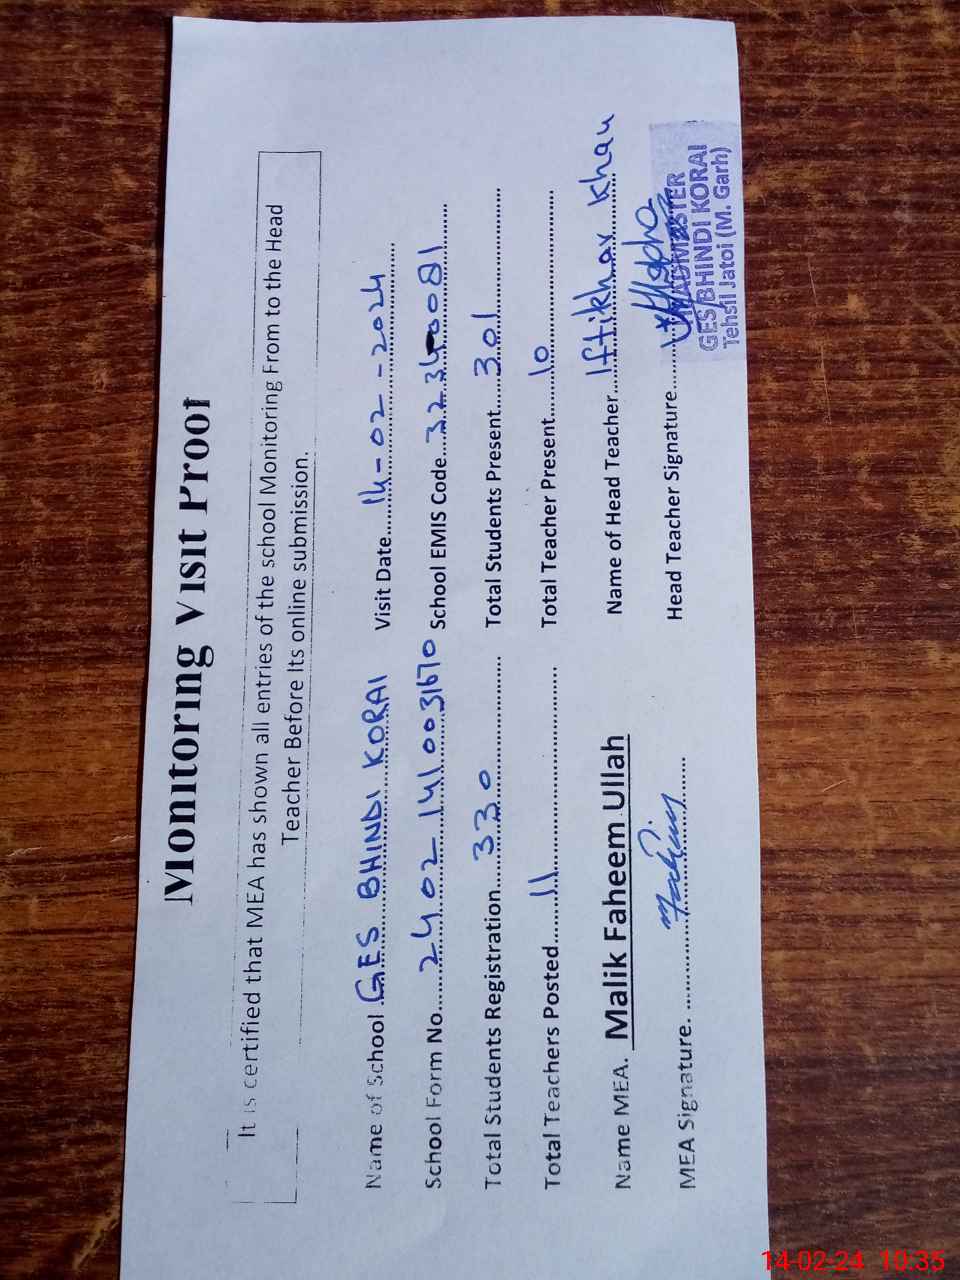 Monitoring Visit Proof
It is certified that MEA has shown all entries of the school Monitoring From to the Head
Teacher Before Its online submission.
Name of School GES BHINDI KORAI Visit Date 14-02-2024
School Form No. 2402 141 0031670 School EMIS Code 32340081
Total Students Registration 330 Total Students Present 301
Total Teachers Posted 11 Total Teacher Present 10
Name MEA. Malik Faheem Ullah Name of Head Teacher Iftikhar Khan
MEA Signature. Head Teacher Signature
HEADMASTER
GES BHINDI KORAI
Tehsil Jatoi (M. Garh)
14-02-24 10:35